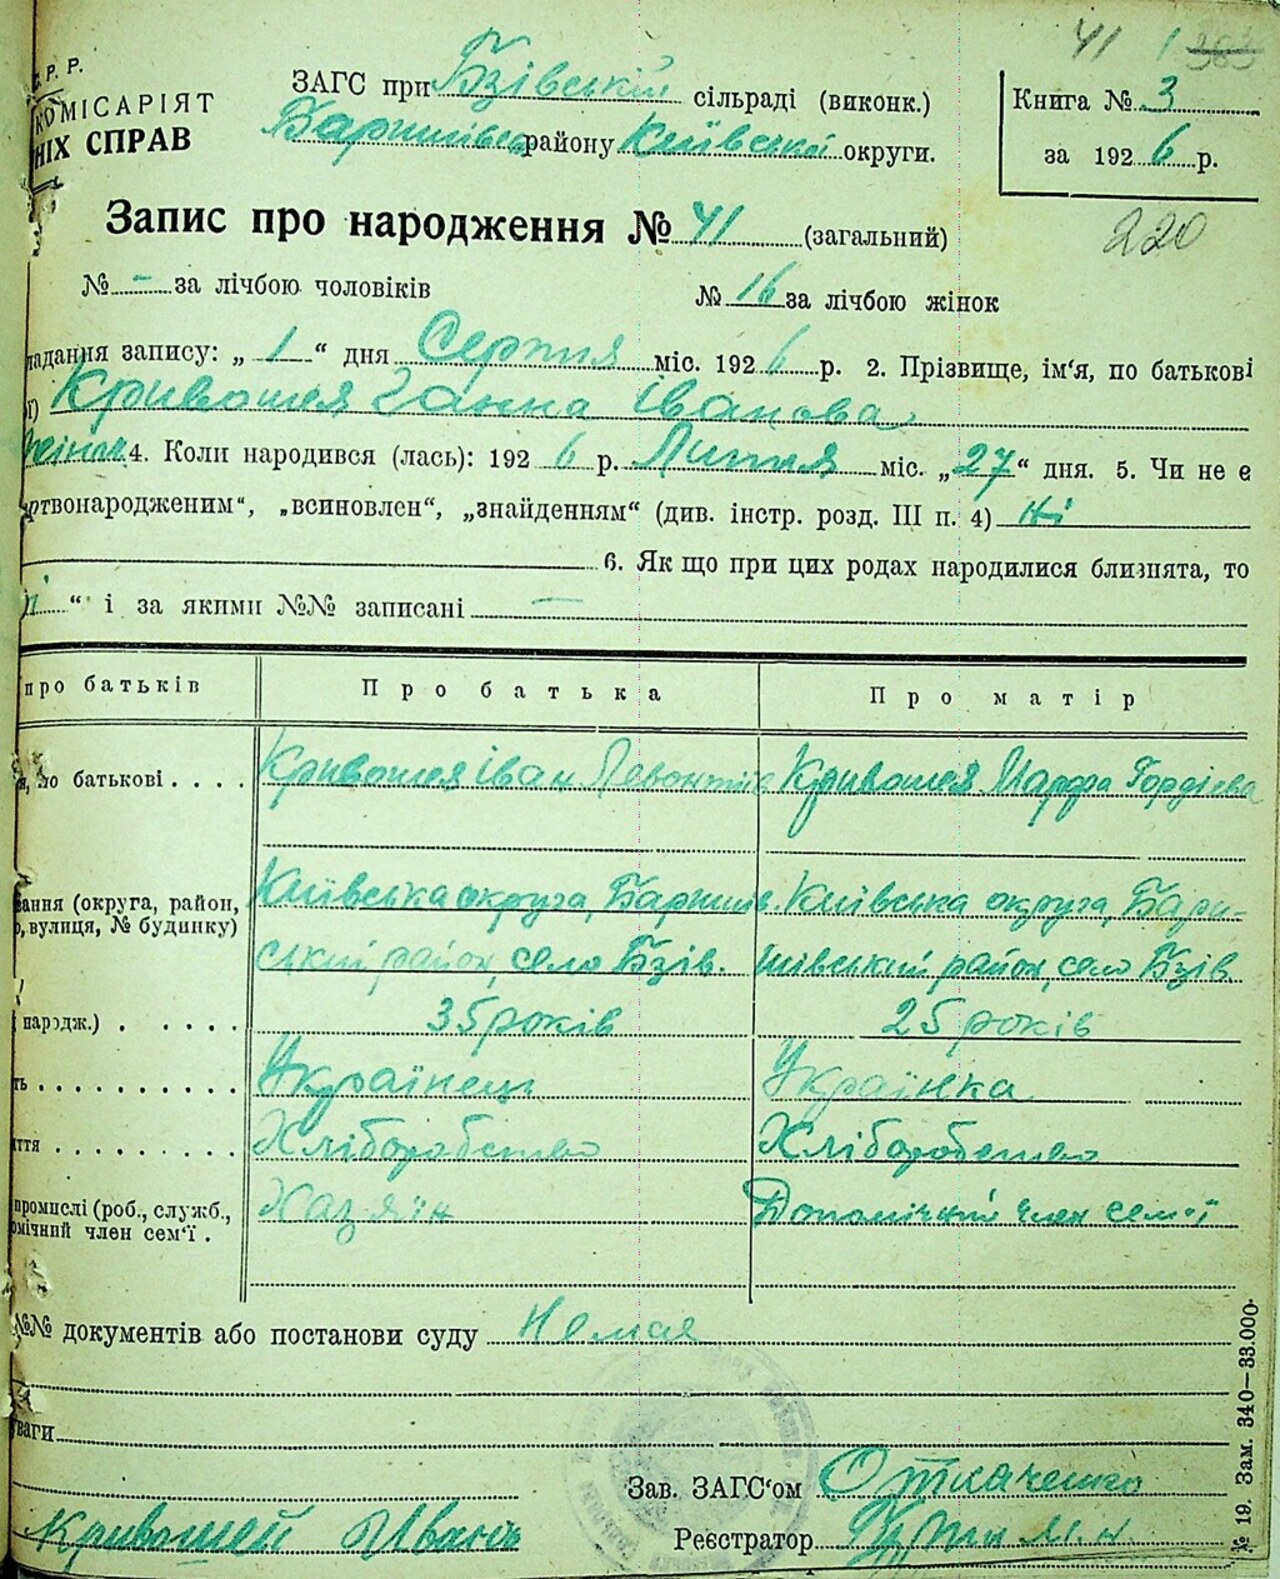 41 1 383
С. Р. Р.
КОМІСАРІЯТ
НІХ СПРАВ
ЗАГС при Бзівській сільраді (виконк.)
Баришівськ району Київської округи.
Книга № 3
за 1926 р.
Запис про народження № 41 (загальний)
220
№ - за лічбою чоловіків № 16 за лічбою жінок
ладання запису: „ 1 “ дня Серпня міс. 1926 р. 2. Прізвище, ім‘я, по батькові
Кривошея Ганна Іванова
жінка 4. Коли народився (лась): 1926 р. Липня міс. „27“ дня. 5. Чи не є
ртвонародженим“, „всиновлен“, „знайденням“ (див. інстр. розд. III п. 4) ні
6. Як що при цих родах народилися близнята, то
“ і за якими №№ записані —
про батьків Про батька Про матір
по батькові . . . . Кривошея Іван Левонтіїв Кривошея Марфа Гордієва
вання (округа, район, Київська округа, Баришів Київська округа, Бари-
вулиця, № будинку) ський район, село Бзів. шівський район, село Бзів.
народж.) . . . . . 35 років 25 років
ть . . . . . . . . . . Українець Українка
ття . . . . . . . . . Хліборобство Хліборобство
промислі (роб., служб., Хазяїн Допомічний член сем'ї
омічний член сем‘ї .
№№ документів або постанови суду Немає
ваги
Зав. ЗАГС‘ом О Ткаченко
Кривошей Иванъ Реєстратор
№ 19. Зам. 340—33.000.